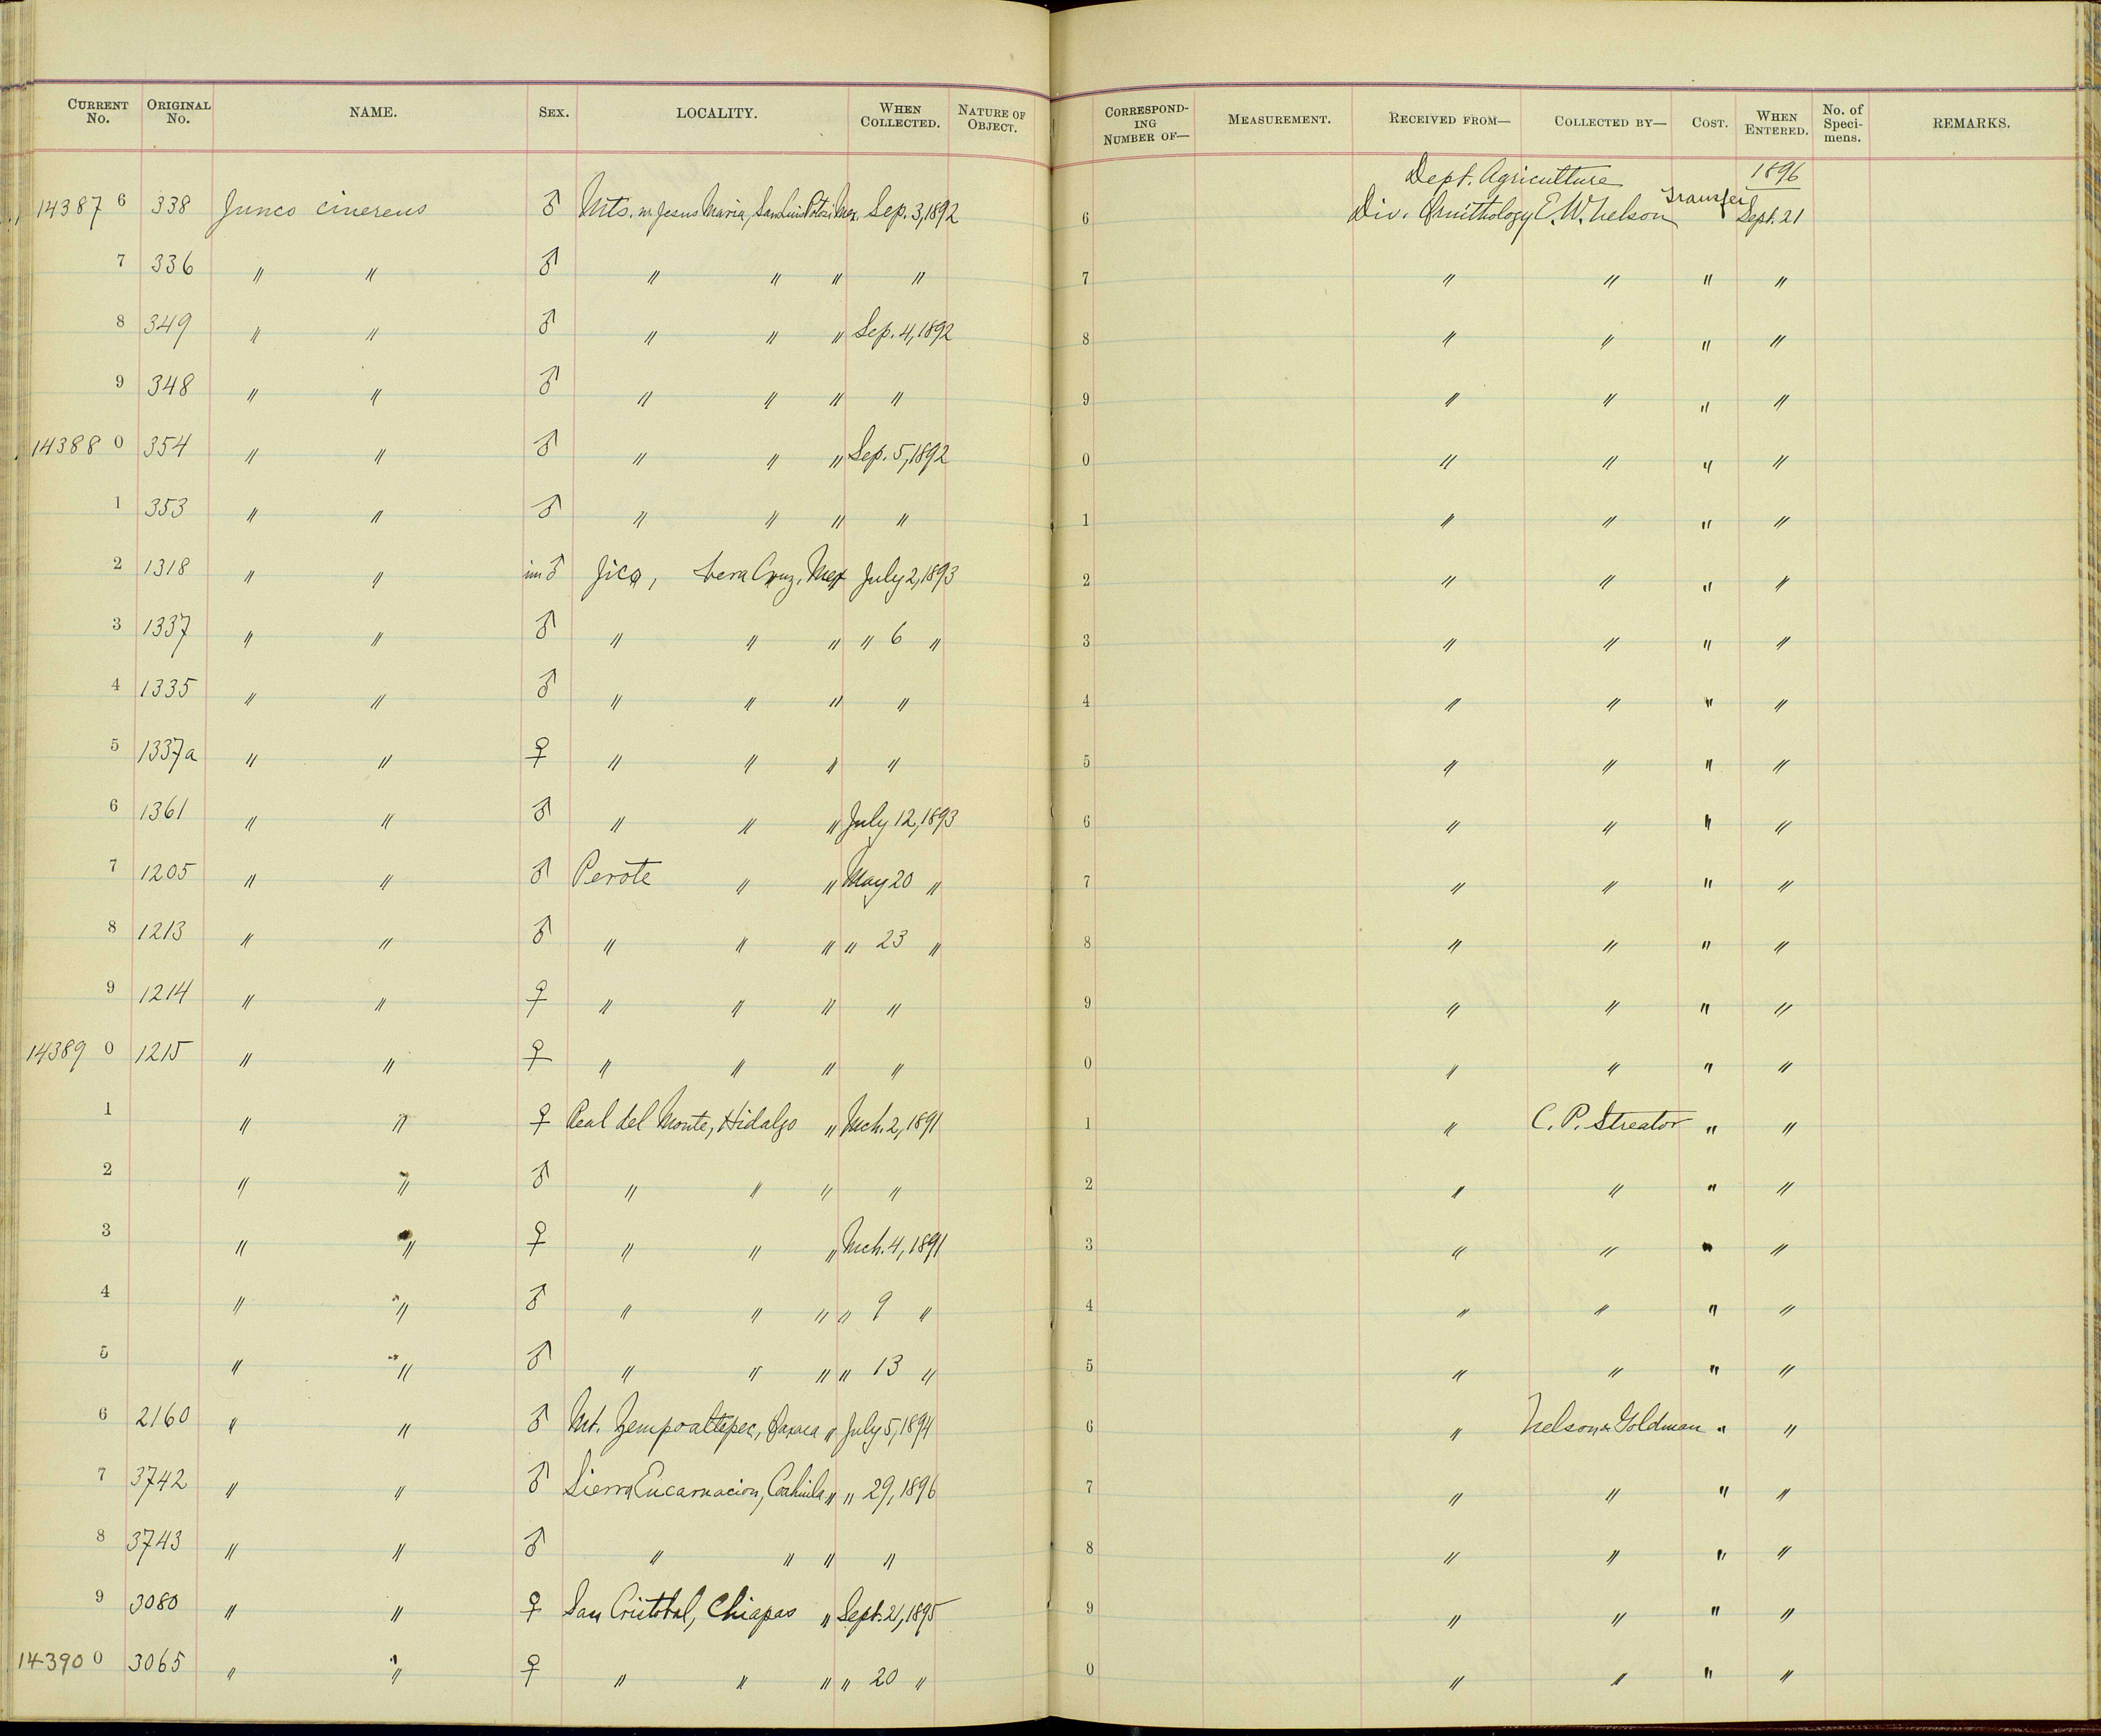 CURRENT No. ORIGINAL No. NAME. SEX. LOCALITY. WHEN COLLECTED. NATURE OF OBJECT. CORRESPONDING NUMBER OF— MEASUREMENT. RECEIVED FROM— COLLECTED BY— COST. WHEN ENTERED. No. of Specimens. REMARKS.
Dept. Agriculture 1896
14387 6 338 Junco cinereus ♂ Mts. nr Jesus Maria, San Luis Potosi Mex. Sep. 3, 1892 6 Div. Ornithology E. W. Nelson Transfer Sept. 21
7 336 " " ♂ " " " " 7 " " " "
8 349 " " ♂ " " " Sep. 4, 1892 8 " " " "
9 348 " " ♂ " " " " 9 " " " "
14388 0 354 " " ♂ " " " Sep. 5, 1892 0 " " " "
1 353 " " ♂ " " " " 1 " " " "
2 1318 " " im ♂ Jico, Vera Cruz, Mex July 2, 1893 2 " " " "
3 1337 " " ♂ " " " " 6 " 3 " " " "
4 1335 " " ♂ " " " " 4 " " " "
5 1337a " " ♀ " " " " 5 " " " "
6 1361 " " ♂ " " " July 12, 1893 6 " " " "
7 1205 " " ♂ Perote " " May 20 " 7 " " " "
8 1213 " " ♂ " " " " 23 " 8 " " " "
9 1214 " " ♀ " " " " 9 " " " "
14389 0 1215 " " ♀ " " " " 0 " " " "
1 " " ♀ Real del Monte, Hidalgo " Mch. 2, 1891 1 " C. P. Streator " "
2 " " ♂ " " " " 2 " " " "
3 " " ♀ " " " Mch. 4, 1891 3 " " " "
4 " " ♂ " " " " 9 " 4 " " " "
5 " " ♂ " " " " 13 " 5 " " " "
6 2160 " " ♂ Mt. Zempoaltepec, Oaxaca " July 5, 1894 6 " Nelson & Goldman " "
7 3742 " " ♂ Sierra Encarnacion, Coahuila " " 29, 1896 7 " " " "
8 3743 " " ♂ " " " " 8 " " " "
9 3080 " " ♀ San Cristobal, Chiapas " Sept. 21, 1895 9 " " " "
14390 0 3065 " " ♀ " " " " 20 " 0 " " " "